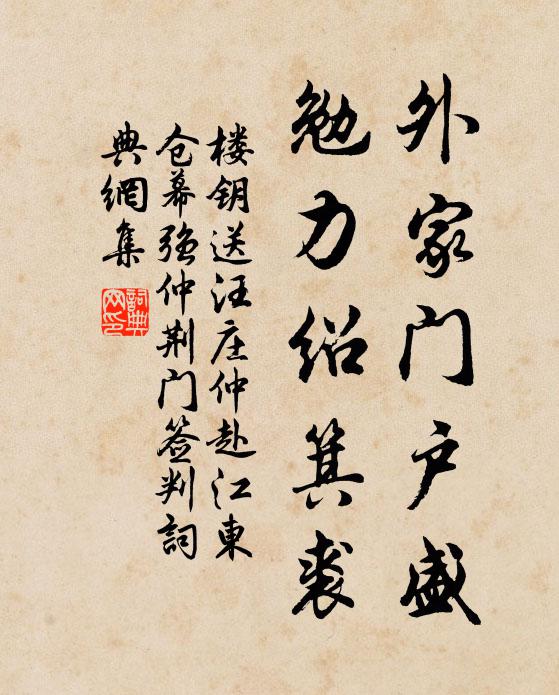 外家门户盛
勉力绍箕裘
楼钥送汪庄仲赴江東
仓幕强仲荆门签判詞
典網集
詞典网印